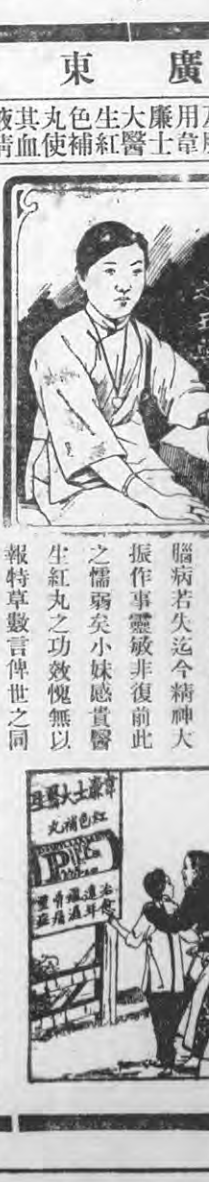 廣東
用韋廉士大醫生紅色補丸使其血液清
腦病若失迄今精神大
振作事靈敏非復前此
之懦弱矣小妹感貴醫
生紅丸之功效愧無以
報特草數言俾世之同
韋廉士大醫生
紅色補丸